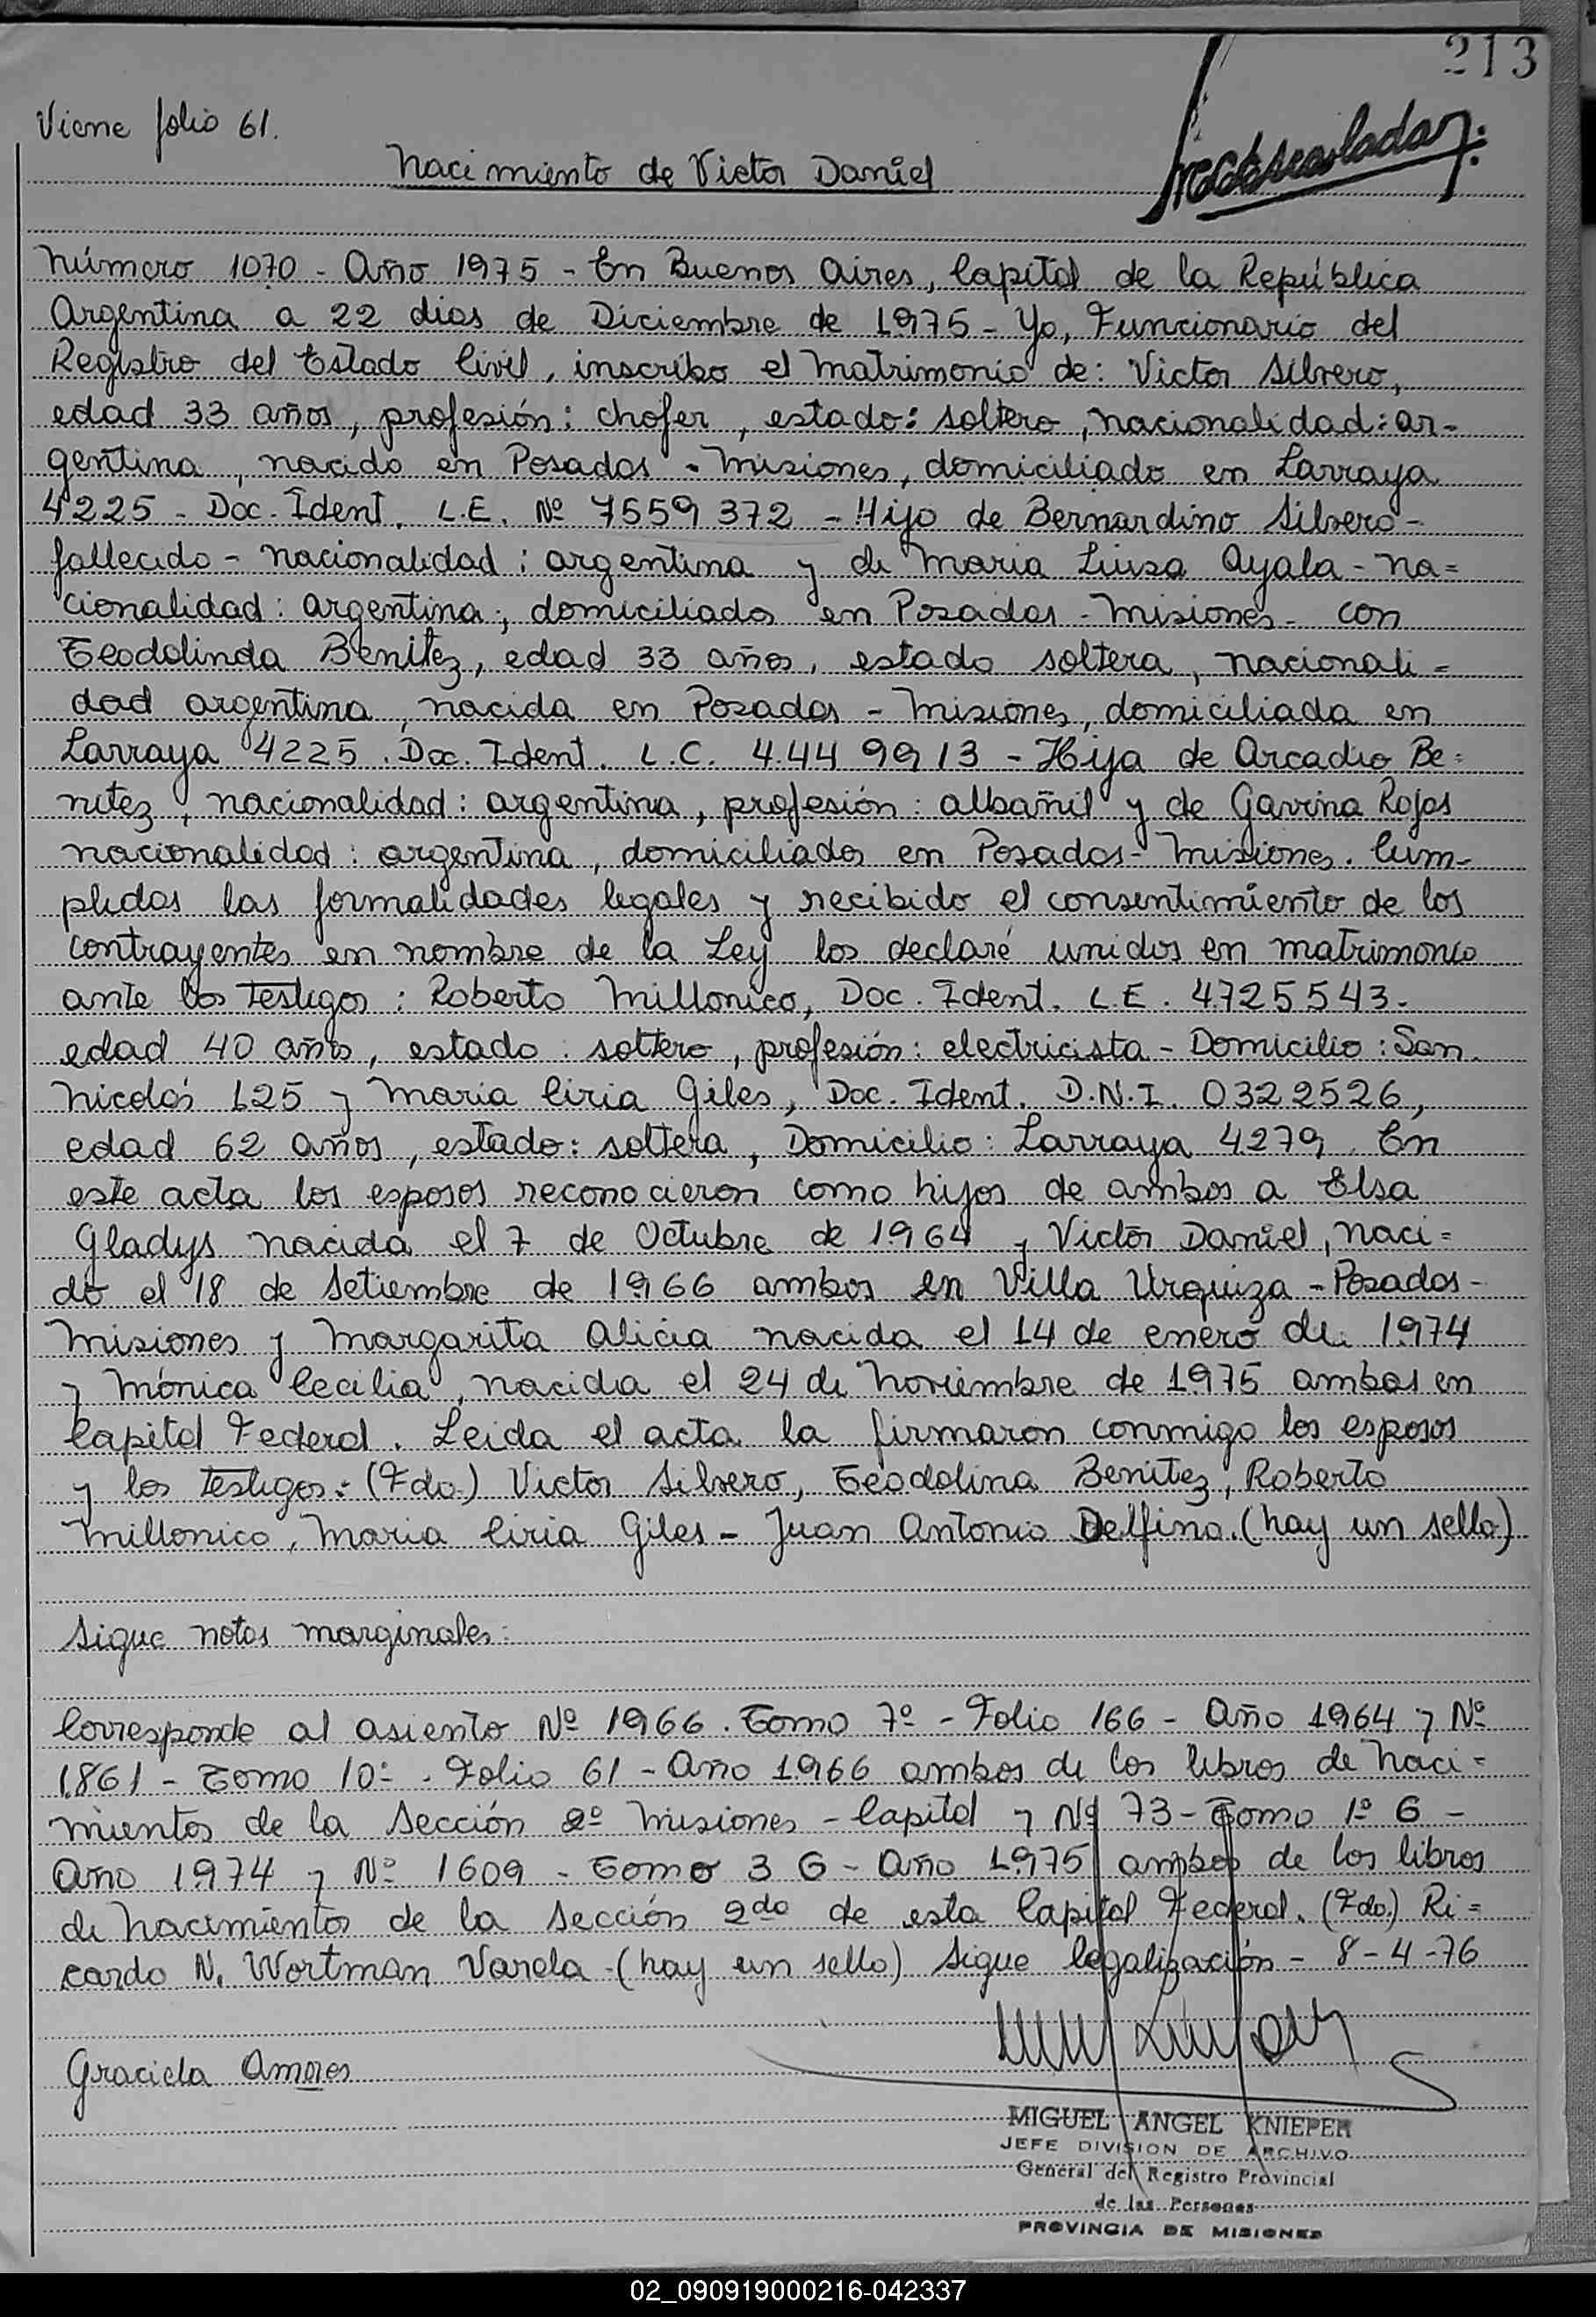 213
Viene folio 61.
Nacimiento de Victor Daniel
Número 1070 - Año 1975 - En Buenos Aires, Capital de la República
Argentina a 22 dias de Diciembre de 1975 - Yo, Funcionario del
Registro del Estado Civil, inscribo el Matrimonio de: Victor Silvero,
edad 33 años, profesión: chofer, estado: soltero, nacionalidad: ar-
gentina, nacido en Posadas - Misiones, domiciliado en Larraya
4225 - Doc. Ident. L.E. Nº 7559372 - Hijo de Bernardino Silvero -
fallecido - nacionalidad: argentina y de Maria Luisa Ayala - na=
cionalidad: argentina, domiciliados en Posadas - Misiones - con
Teodolinda Benitez, edad 33 años, estado soltera, nacionali=
dad argentina, nacida en Posadas - Misiones, domiciliada en
Larraya 4225. Doc. Ident. L.C. 4.449913 - Hija de Arcadio Be=
nitez, nacionalidad: argentina, profesión: albañil y de Gavina Rojas
nacionalidad: argentina, domiciliados en Posadas - Misiones. Cum-
plidas las formalidades legales y recibido el consentimiento de los
contrayentes en nombre de la Ley los declaré unidos en matrimonio
ante los testigos: Roberto Millonico, Doc. Ident. L.E. 4.725.543.
edad 40 años, estado: soltero, profesión: electricista - Domicilio: San
Nicolás 125 y Maria Ciria Giles, Doc. Ident. D.N.I. 0322526,
edad 62 años, estado: soltera, Domicilio: Larraya 4279. En
este acta los esposos reconocieron como hijos de ambos a Elsa
Gladys nacida el 7 de Octubre de 1964 y Victor Daniel, naci=
do el 18 de Setiembre de 1966 ambos en Villa Urquiza - Posadas -
Misiones y Margarita Alicia nacida el 14 de enero de 1974
y Mónica Cecilia, nacida el 24 de Noviembre de 1975 ambas en
Capital Federal. Leida el acta la firmaron conmigo los esposos
y los testigos: (Fdo.) Victor Silvero, Teodolina Benitez, Roberto
Millonico, Maria Ciria Giles - Juan Antonio Delfino. (hay un sello)
Sigue notas marginales:
Corresponde al asiento Nº 1966. Tomo 7º - Folio 166 - Año 1964 y Nº
1861 - Tomo 10º - Folio 61 - Año 1966 ambos de los libros de Naci=
mientos de la Sección 2º Misiones - Capital y Nº 73 - Tomo 1º G -
Año 1974 y Nº 1609 - Tomo 3 G - Año 1975 ambos de los libros
de Nacimientos de la Sección 2do de esta Capital Federal. (Fdo.) Ri=
cardo N. Wortman Varela - (hay un sello) Sigue legalización - 8-4-76
Graciela Amores
MIGUEL ANGEL KNIEPER
JEFE DIVISION DE ARCHIVO
General del Registro Provincial
de las Personas
PROVINCIA DE MISIONES
02_090919000216-042337